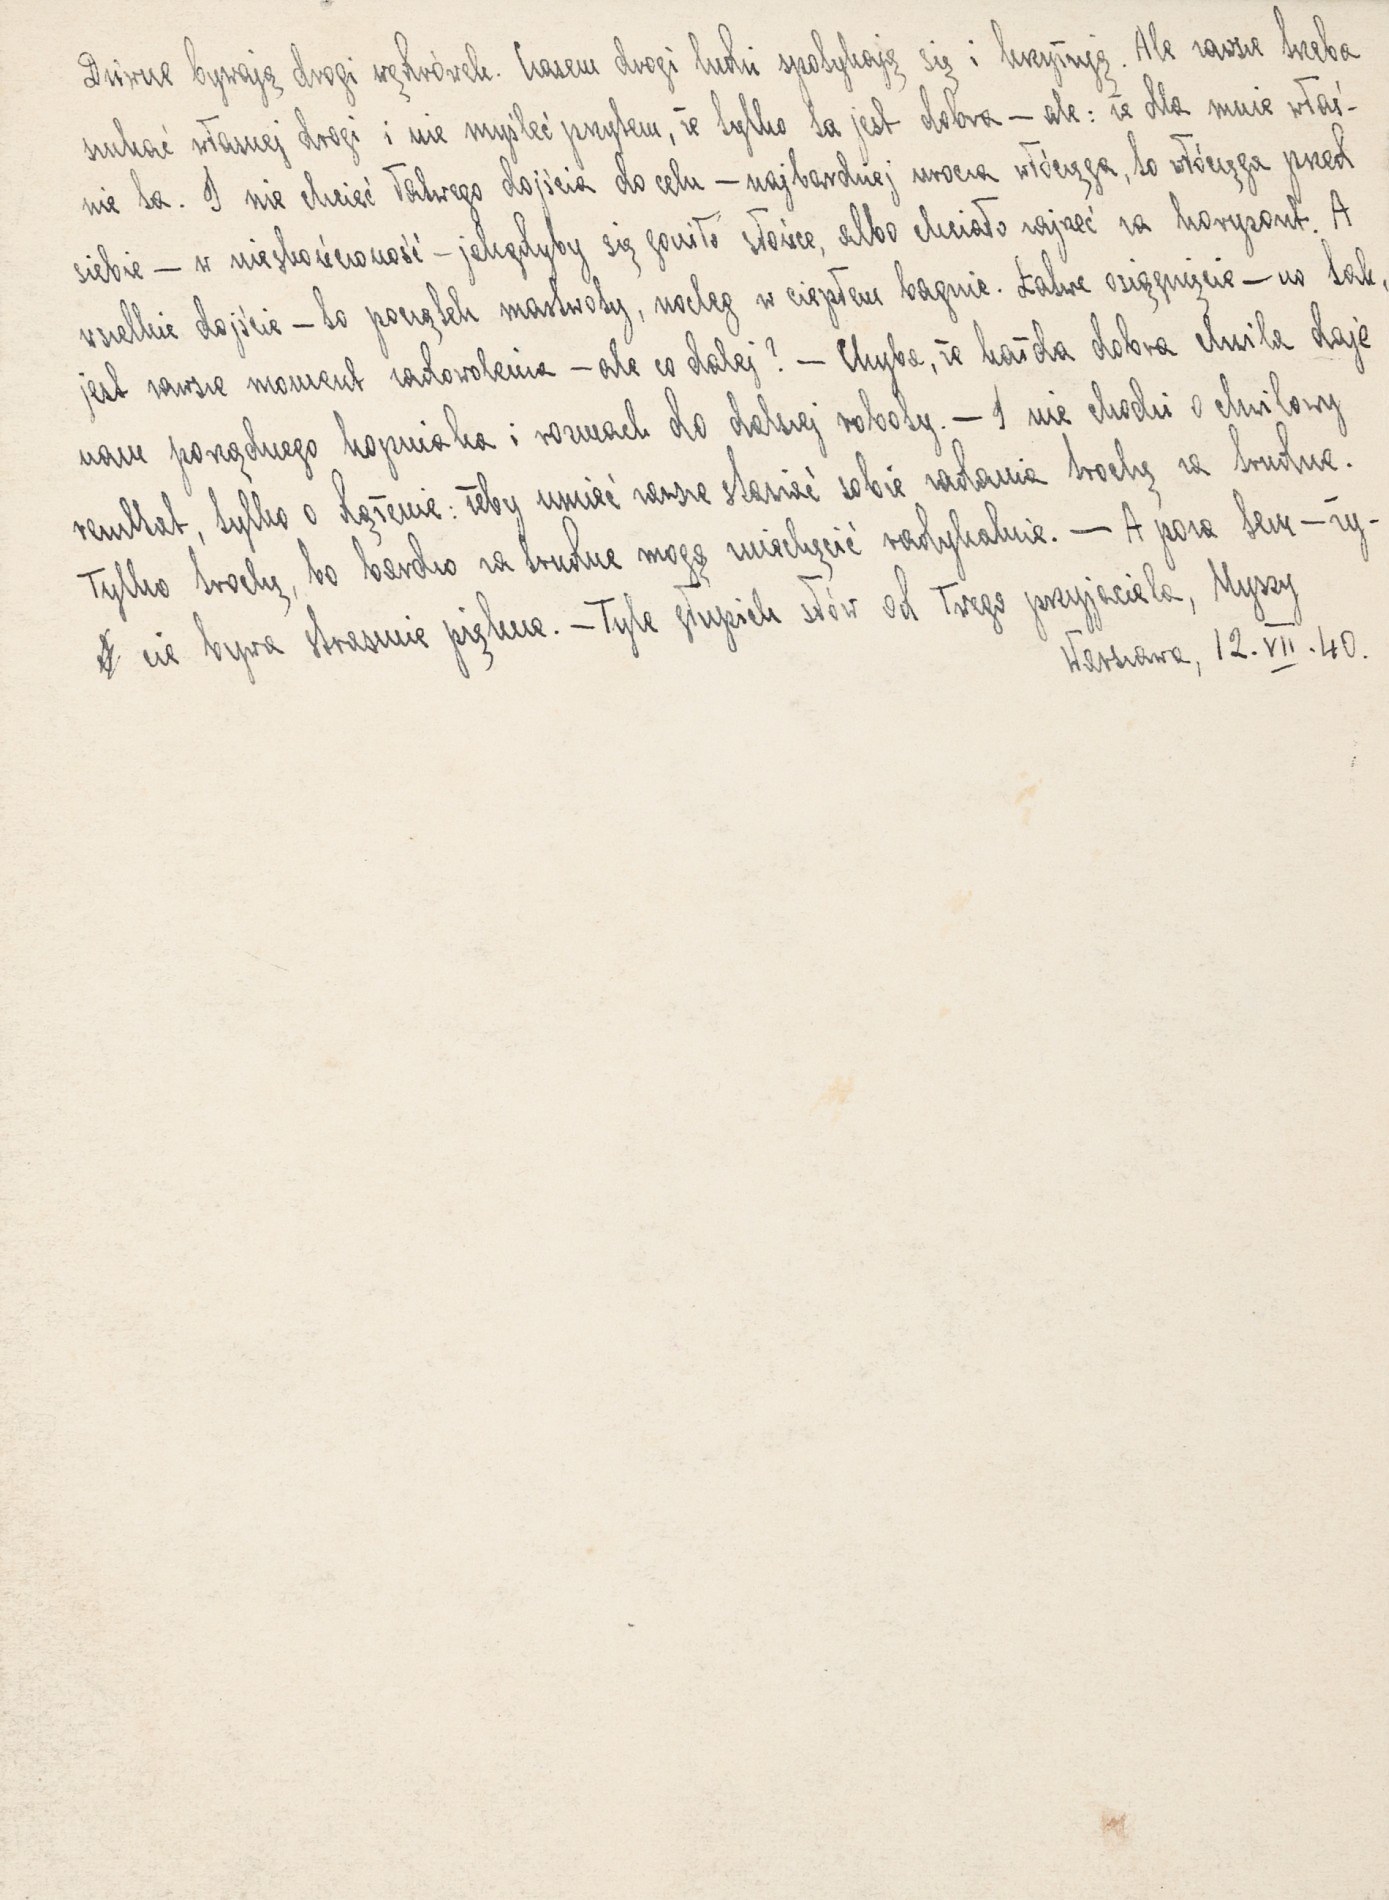 Dziwne bywają drogi wędrówek. Czasem drogi ludzi spotykają się i krzyżują. Ale zawsze trzeba
szukać własnej drogi i nie myśleć przytem, że tylko ta jest dobra — ale: że dla mnie właś-
nie ta. I nie chcieć łatwego dojścia do celu — najbardziej urocza włóczęga, to włóczęga przed
siebie — w nieskończoność — jakgdyby się goniło słońce, albo chciało zajrzeć za horyzont. A
wszelkie dojście — to początek martwoty, nocleg w ciepłem bagnie. Łatwe osiągnięcie — no tak,
jest zawsze moment zadowolenia — ale co dalej? — Chyba, że każda dobra chwila daje
nam porządnego kopniaka i rozmach do dalszej roboty. — I nie chodzi o chwilowy
rezultat, tylko o dążenie: żeby umieć zawsze stawiać sobie zadania trochę za trudne.
Tylko trochę, bo bardzo za trudne mogą zniechęcić radykalnie. — A poza tem — ży-
cie bywa strasznie piękne. — Tyle głupich słów od Twego przyjaciela, Myszy
Warszawa, 12.VII.40.